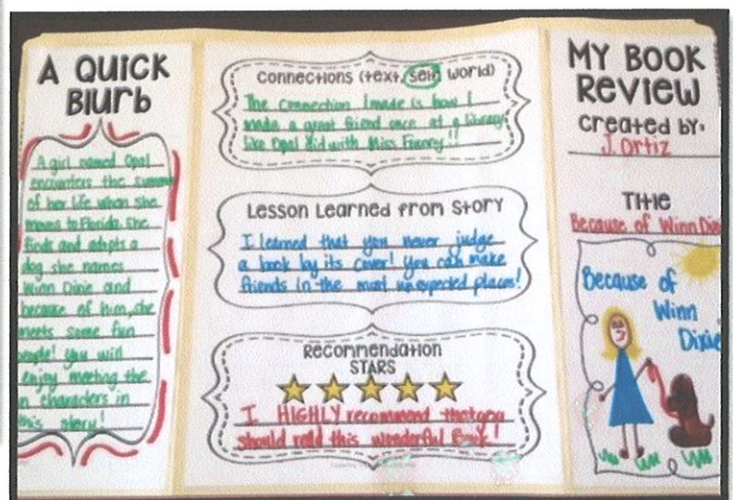 A QUICK
BLURB
A girl named Opal
encounters the summer
of her life when she
moves to Florida. She
finds and adopts a
dog she names
Winn Dixie and
because of him, she
meets some fun
people! You will
enjoy meeting the
characters in
this story!
Connections (text, self, world)
The connection I made is how I
made a great friend once at a library
like Opal did with Miss Franny!!
Lesson Learned from Story
I learned that you never judge
a book by its cover! You can make
friends in the most unexpected places!
Recommendation
STARS
I HIGHLY recommend that you
should read this wonderful Book!
MY BOOK
REVIEW
Created by:
J. Ortiz
Title
Because of Winn Dixie
Because of
Winn
Dixie